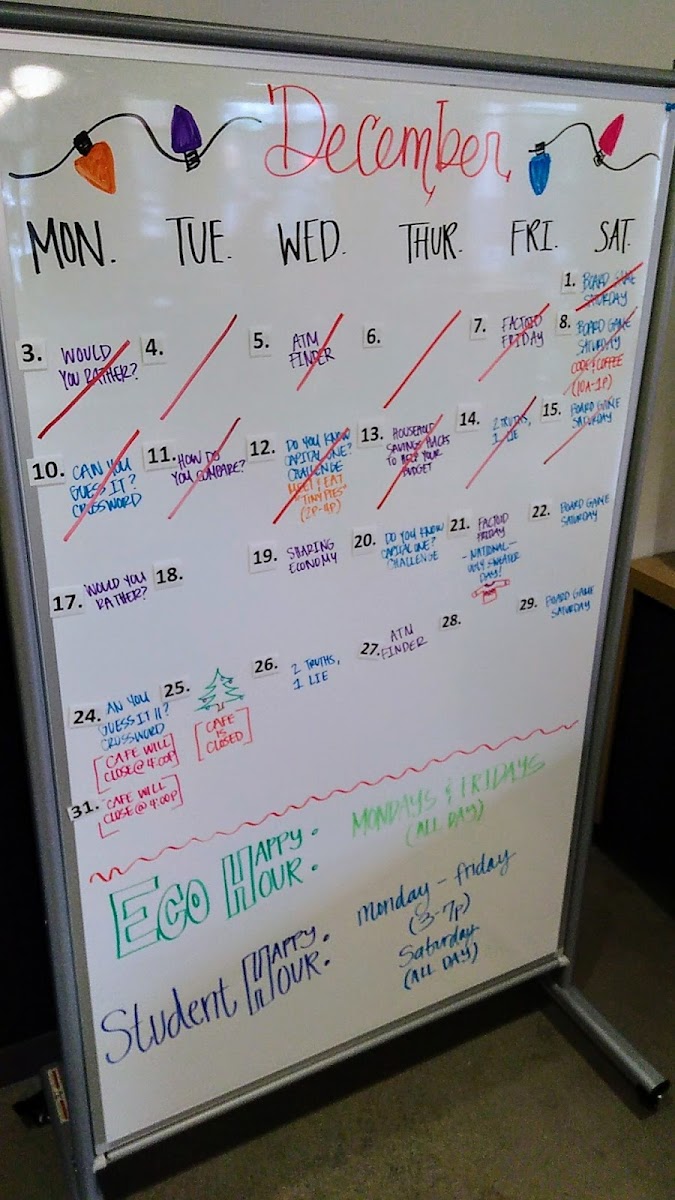 December
MON. TUE. WED. THUR. FRI. SAT.
1. BOARD GAME
SATURDAY
3. WOULD
YOU RATHER?
4.
5. ATM
FINDER
6.
7. FACTOID
FRIDAY
8. BOARD GAME
SATURDAY
CODE & COFFEE
(10A-1P)
10. CAN YOU
GUESS IT?
CROSSWORD
11. HOW DO
YOU COMPARE?
12. DO YOU KNOW
CAPITAL ONE?
CHALLENGE
MEET & EAT
"TINY PIES"
(2P-4P)
13. HOUSEHOLD
SAVING HACKS
TO HELP YOUR
BUDGET
14. 2 TRUTHS,
1 LIE
15. BOARD GAME
SATURDAY
17. WOULD YOU
RATHER?
18.
19. SHARING
ECONOMY
20. DO YOU KNOW
CAPITAL ONE?
CHALLENGE
21. FACTOID
FRIDAY
-NATIONAL-
UGLY SWEATER
DAY!
22. BOARD GAME
SATURDAY
24. AN YOU
GUESS IT II?
CROSSWORD
[CAFE WILL
CLOSE@4:00P]
25. [CAFE
IS
CLOSED]
26. 2 TRUTHS,
1 LIE
27. ATM
FINDER
28.
29. BOARD GAME
SATURDAY
31. [CAFE WILL
CLOSE@4:00P]
ECO HAPPY HOUR: MONDAYS & FRIDAYS
(ALL DAY)
Student HAPPY HOUR: monday - friday
(3-7p)
Saturday
(ALL DAY)